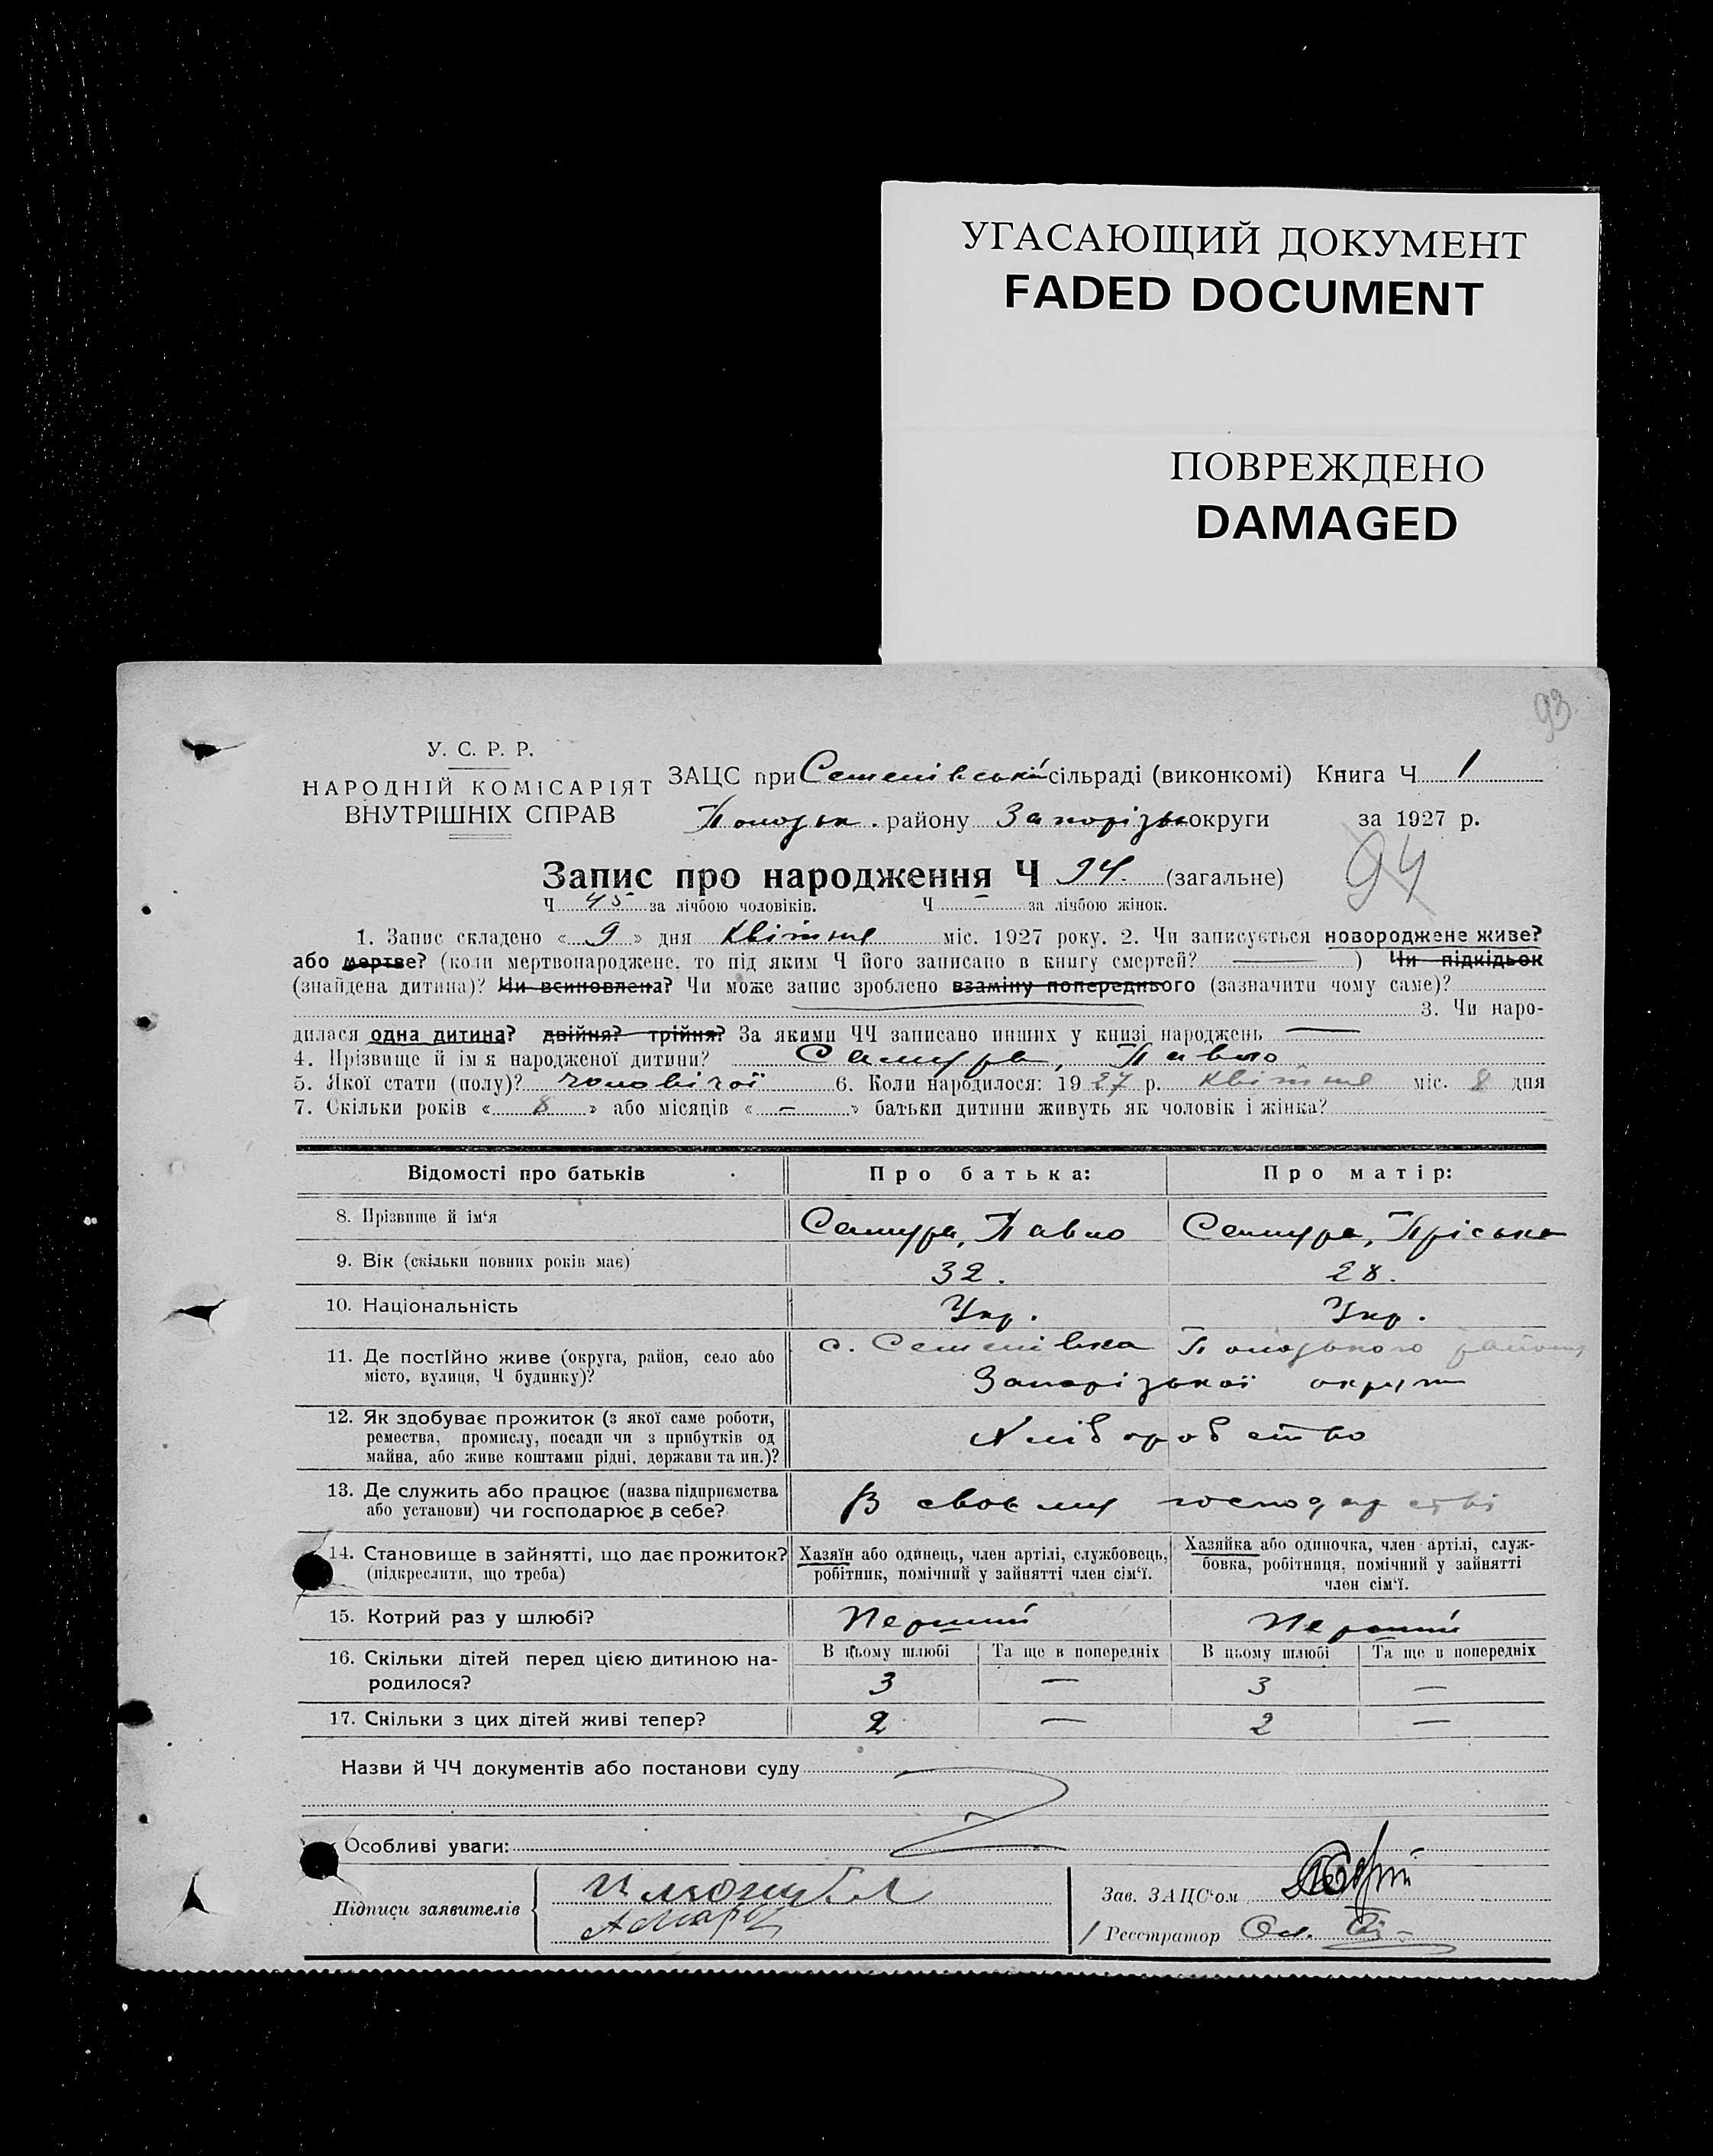 УГАСАЮЩИЙ ДОКУМЕНТ
FADED DOCUMENT
ПОВРЕЖДЕНО
DAMAGED
93
У. С. Р. Р.
НАРОДНІЙ КОМІСАРІЯТ
ВНУТРІШНІХ СПРАВ
ЗАЦС при Семенівській сільраді (виконкомі) Книга Ч 1
Пологськ. району Запорізьк округи за 1927 р.
94
Запис про народження Ч 94. (загальне)
Ч 45 за лічбою чоловіків. Ч — за лічбою жінок.
1. Запис складено « 9 » дня Квітня міс. 1927 року. 2. Чи записується новороджене живе?
або мертве? (коли мертвонароджене, то під яким Ч його записано в книгу смертей? —) Чи підкідьок
(знайдена дитина)? Чи всиновлена? Чи може запис зроблено взаміну попереднього (зазначити чому саме)?
3. Чи наро-
дилася одна дитина? двійня? трійня? За якими ЧЧ записано инших у книзі народжень —
4. Прізвище й ім я народженої дитини? Самура, Павло
5. Якої стати (полу)? чоловічої 6. Коли народилося: 1927 р. Квітня міс. 8 дня
7. Скільки років « 8 » або місяців « — » батьки дитини живуть як чоловік і жінка?
Відомості про батьків Про батька: Про матір:
8. Прізвище й ім‘я Самура, Павло Самура, Пріська
9. Вік (скільки повних років має) 32. 28.
10. Національність Укр. Укр.
11. Де постійно живе (округа, район, село або с. Семенівка Пологського району
місто, вулиця, Ч будинку)? Запорізької округи
12. Як здобуває прожиток (з якої саме роботи,
ремества, промислу, посади чи з прибутків од Хліборобство
майна, або живе коштами рідні, держави та ин.)?
13. Де служить або працює (назва підприємства В своєму господарстві
або установи) чи господарює в себе?
14. Становище в зайнятті, що дає прожиток? Хазяїн або одинець, член артілі, службовець, Хазяйка або одиночка, член артілі, служ-
(підкреслити, що треба) робітник, помічний у зайнятті член сім‘ї. бовка, робітниця, помічний у зайнятті
член сім‘ї.
15. Котрий раз у шлюбі? Перший Перший
16. Скільки дітей перед цією дитиною на- В цьому шлюбі Та ще в попередніх В цьому шлюбі Та ще в попередніх
родилося? 3 — 3 —
17. Скільки з цих дітей живі тепер? 2 — 2 —
Назви й ЧЧ документів або постанови суду
Особливі уваги:
Підписи заявителів
Зав. ЗАЦС‘ом
Реєстратор